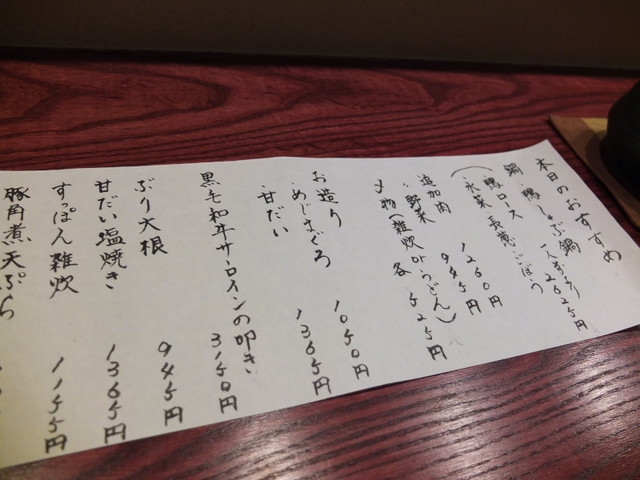 本日のおすすめ
鍋 鴨しゃぶ鍋 一人前より 2625円
(鴨ロース
・水菜・長葱・ごぼう
追加肉 1260円
・野菜 945円
〆物(雑炊orうどん)各 525円
お造り
・めじまぐろ 1050円
・甘だい 1365円
黒毛和牛サーロインの叩き 3150円
ぶり大根 945円
甘だい塩焼き 1365円
すっぽん雑炊 1155円
豚角煮天ぷら